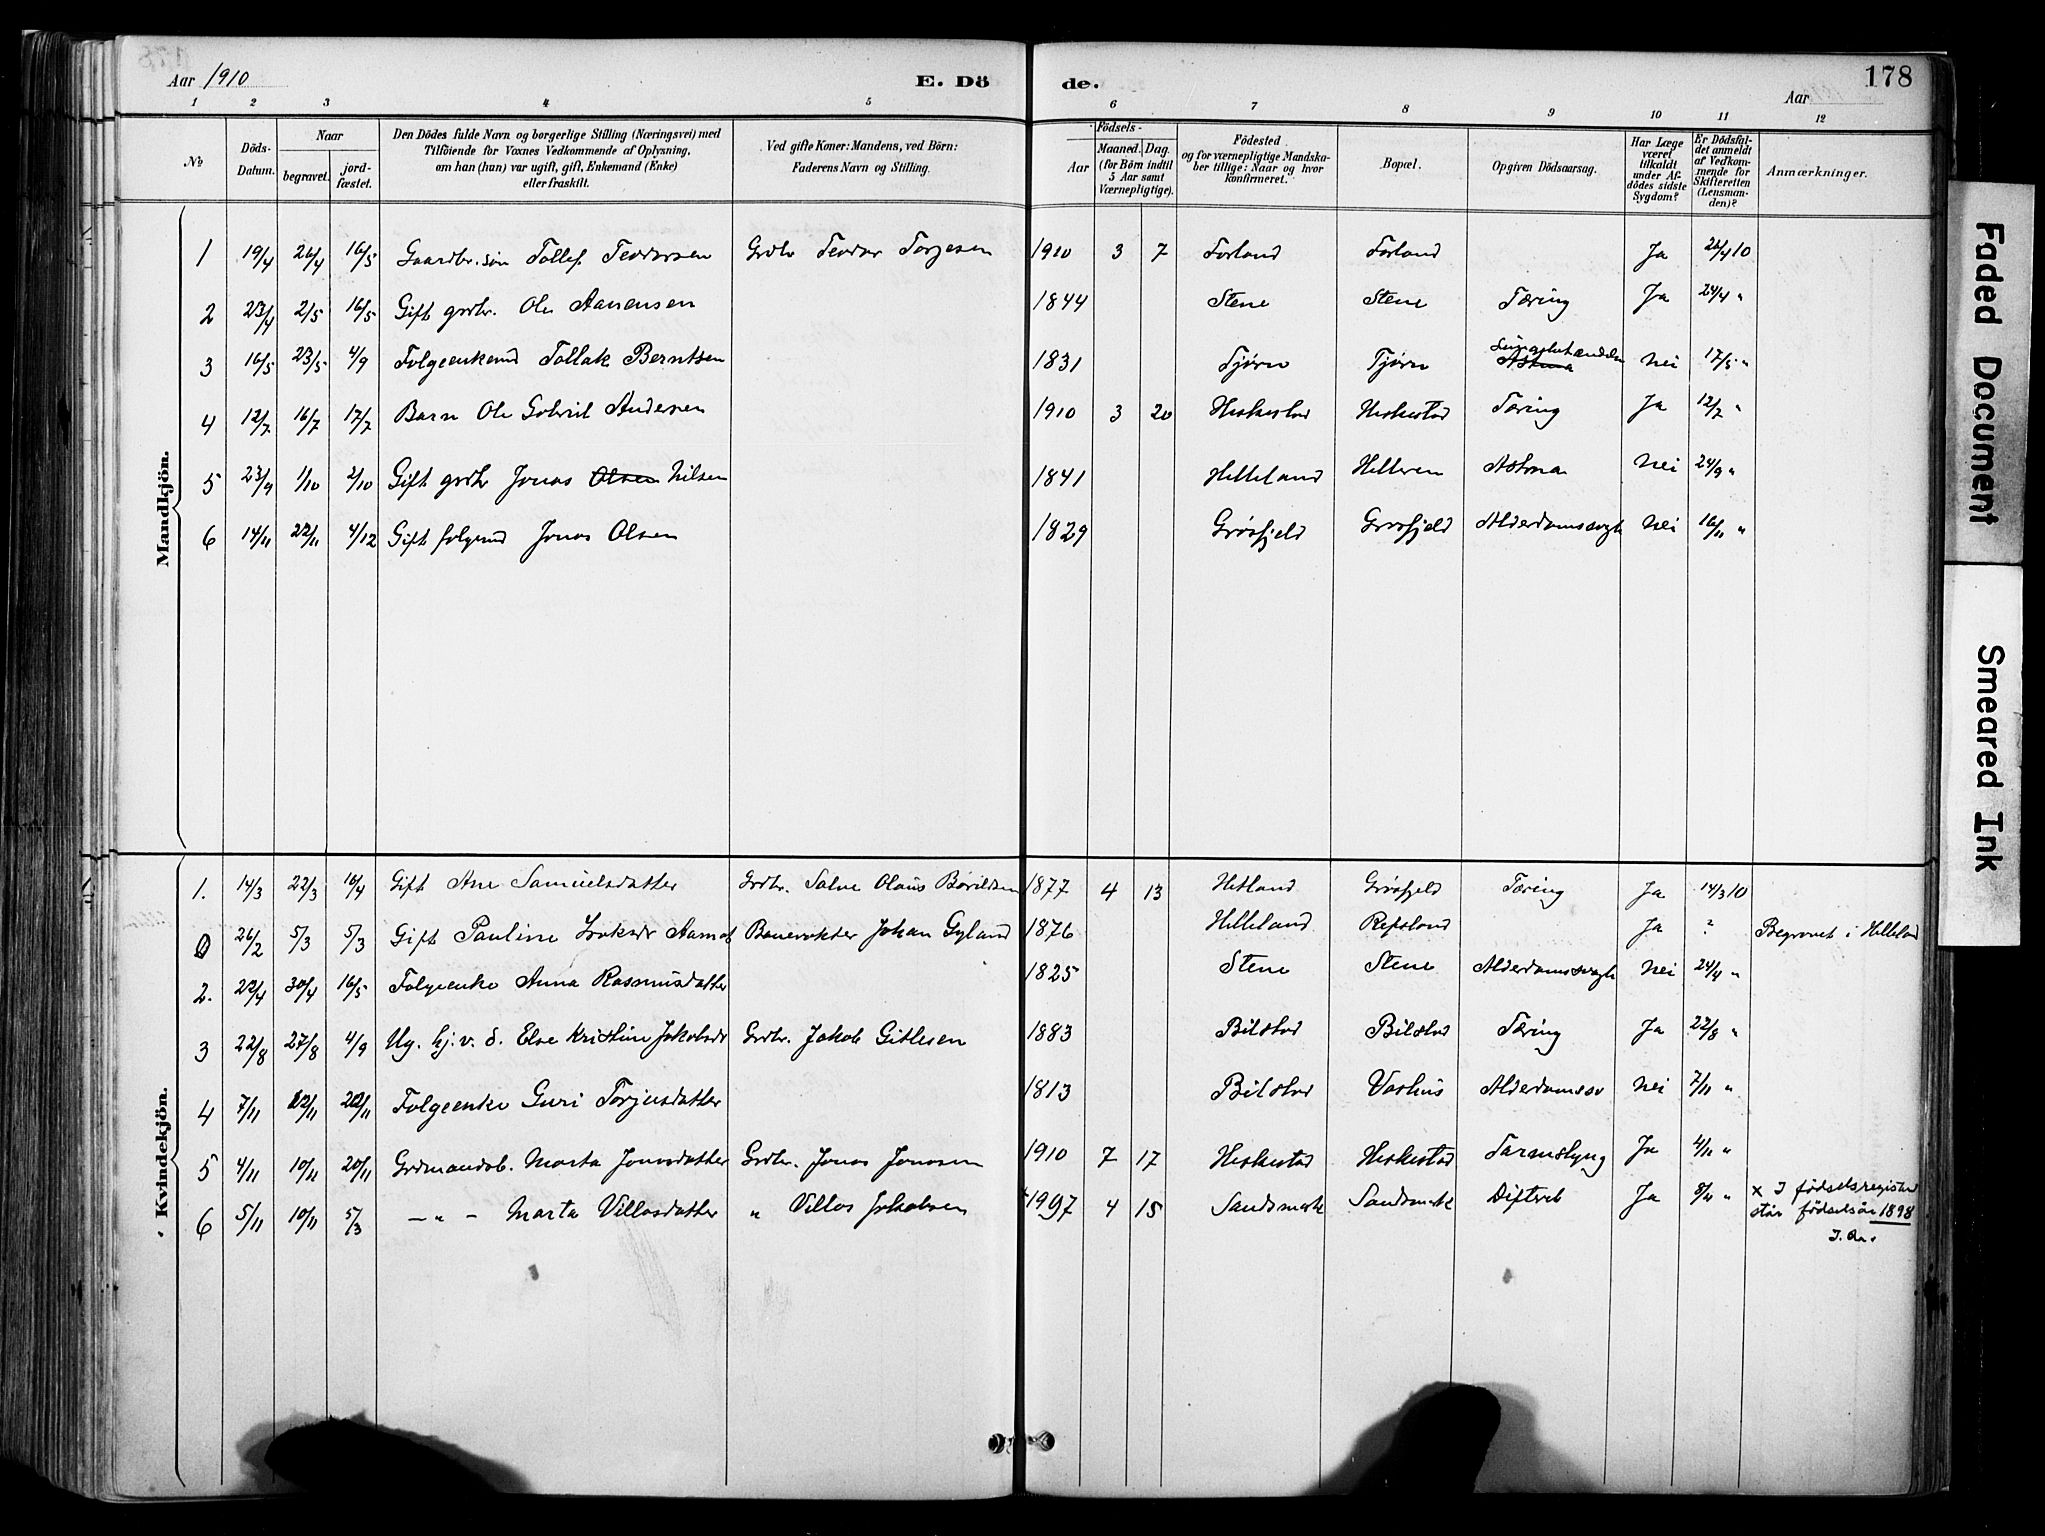 Aar 1910
E. Dö
de.
178
Aar
1 2 3 4 5 6 7 8 9 10 11 12
No
Döds-Datum.
Naar
begravet.
jord-fæstet.
Den Dödes fulde Navn og borgerlige Stilling (Næringsvei) med
Tilföiende for Voxnes Vedkommende af Oplysning,
om han (hun) var ugift, gift, Enkemand (Enke)
eller fraskilt.
Ved gifte Koner: Mandens, ved Börn:
Faderens Navn og Stilling.
Födsels-
Aar
Maaned.
Dag.
(for Börn indtil
5 Aar samt
Værnepligtige).
Födested
og for værnepligtige Mandska-
ber tillige: Naar og hvor
konfirmeret.
Bopæl.
Opgiven Dödsaarsag.
Har Læge
været
tilkaldt
under Af-
dödes sidste
Sygdom?
Er Dödsfal-
det anmeldt
af Vedkom-
mende for
Skifteretten
(Lensman-
den)?
Anmærkninger.
Mandkjön.
1 19/4 26/4 16/5 Gaardbr. søn Tollef Teodorsen Grdbr Teodor Torgesen 1910 3 7 Forland Forland Ja 26/4 10
2 23/4 2/5 16/5 Gift grdbr. Ole Aanensen 1844 Stene Stene Tæring Ja 24/4 "
3 16/5 23/5 4/9 Folgeenkemd Tollak Berntsen 1831 Tjørn Tjørn Astma nei 17/5 "
4 12/7 16/7 17/7 Barn Ole Gabriel Andersen 1910 3 20 Heskestad Heskestad Tæring Ja 12/7 "
5 23/9 1/10 2/10 Gift grdbr Jonas Olsen Nilsen 1841 Helleland Helleren Astma nei 24/9 "
6 14/11 22/11 4/12 Gift folgemd Jonas Olsen 1829 Grøsfjeld Grøsfjeld Alderdomssvagh nei 16/11 "
Kvindekjön.
1. 14/3 22/3 16/4 Gift Ane Samuelsdatter Grdbr. Salve Olaus Bøvildsen 1877 4 13 Hetland Grøsfjeld Tæring Ja 14/3 10
0 26/2 5/3 5/3 Gift Pauline Aamot Banevokter Johan Gyland 1876 Helleland Refsland Ja ? Begravet i Helleland
2. 22/4 30/4 16/5 Folgeenke Anna Rasmusdatter 1825 Stene Stene Alderdomssvagh nei 24/4 "
3 22/8 27/8 4/9 Ug. hj. v. d. Else Kristine Jakobsdr Grdbr. Jakob Gitlesen 1883 Bilstad Bilstad Tæring Ja 22/8 "
4 7/11 12/11 20/11 Folgeenke Guri Torjusdatter 1813 Bilstad Vashus Alderdomssv nei 7/11 "
5 4/11 10/11 20/11 Grdmandsb. Marta Jonasdatter Grdbr. Jonas Jonasen 1910 7 17 Heskestad Heskestad Tarmslyng Ja 4/11 "
6 5/11 10/11 5/3 – " – Marta Villasdatter " Villas Jakobsen 1997 4 15 Sandsmark Sandsmark Difterit Ja 8/11 " x I fødselsregistret
står fødselsår 1898
J. Aa.
Faded Document
Smeared Ink